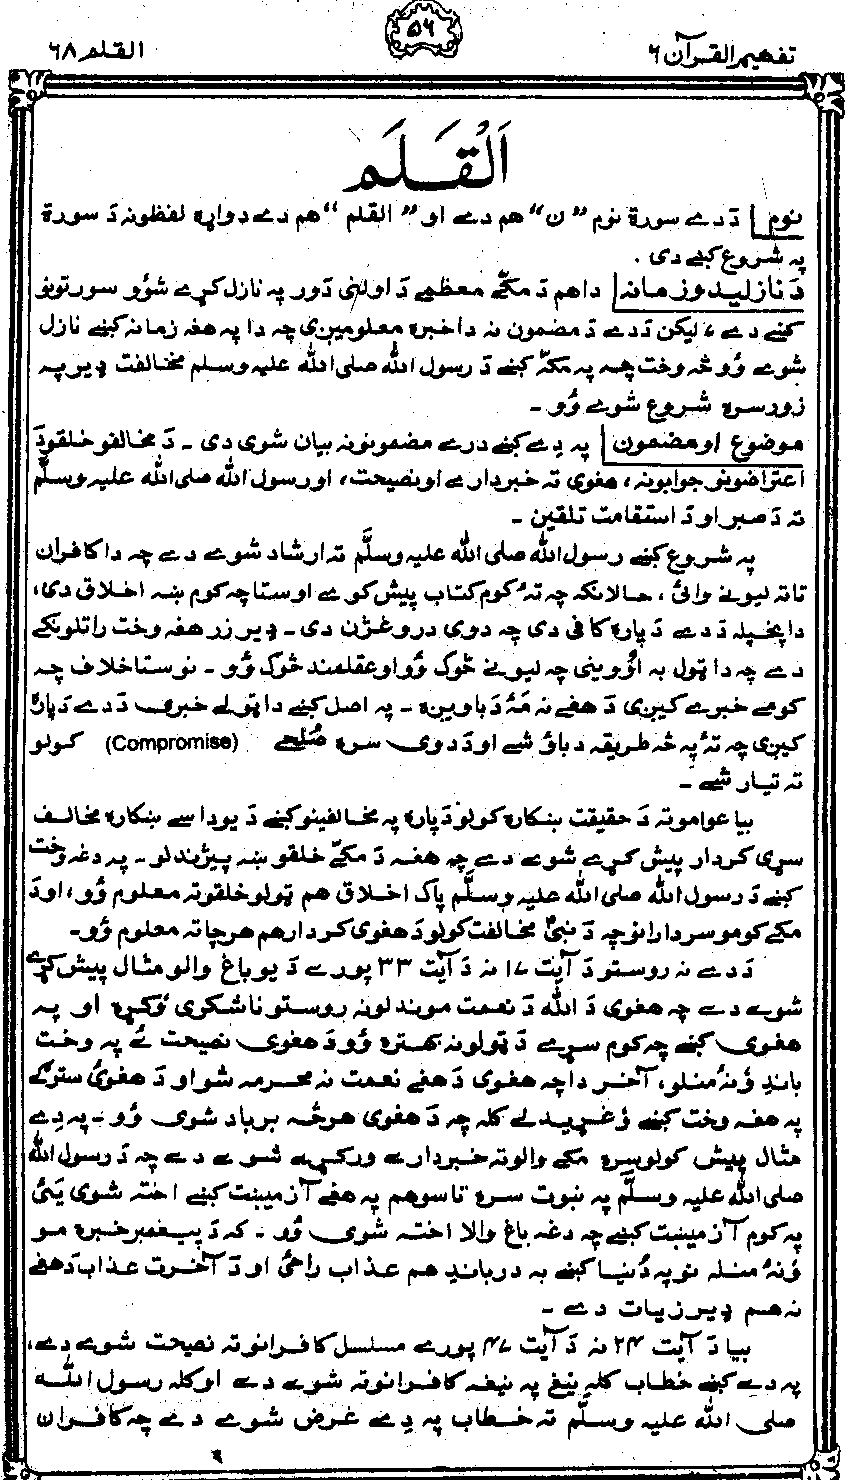 تفهیم القرآن ۶
۵۶
القلم ۶۸
اَلْقَلَم
نوم | دَ دے سورة نوم ”ن“ هم دے او ”القلم“ هم دے دواړه لفظونه دَ سورة
په شروع کښے دی .
دَ نازلیدو زمانه | داهم دَ مکّے معظمے دَ اولنی دَور په نازل کړے شوؤ سورتونو
کښے دے، لیکن دَ دے دَ مضمون نه دا خبره معلومیږی چه دا په هغه زمانه کښے نازل
شوے ؤو څه وخت چه په مکه کښے دَ رسول الله صلی الله علیه وسلم مخالفت ډیر په
زور سره شروع شوے ؤو ۔
موضوع او مضمون | په دِے کښے درے مضمونونه بیان شوی دی ۔ دَ مخالفو خلقو دَ
اعتراضونو جوابونه، هغوی ته خبردارے او نصیحت، او رسول الله صلی الله علیه وسلّم
ته دَ صبر او دَ استقامت تلقین ۔
په شروع کښے رسول الله صلی الله علیه وسلّم ته ارشاد شوے دے چه دا کافران
تا ته لیونے وائی، حالانکه چه تهٔ کوم کتاب پیش کوے او ستا چه کوم ښه اخلاق دی،
دا پخپله دَ دے دَ پاره کافی دی چه دوی دروغژن دی ۔ ډیر زر هغه وخت راتلونکے
دے چه دا ټول به اوُوینی چه لیونے څوک ؤو او عقلمند څوک ؤو ۔ نو ستا خلاف چه
کومے خبرے کیږی دَ هغے نه مهٔ دَباویږه ۔ په اصل کښے دا ټولے خبرے دَ دے دَ پاره
کیږی چه تهٔ په څه طریقه دباؤ شے او دَ دوی سره صُلحے (Compromise) کولو
ته تیار شے ۔
بیا عوامو ته دَ حقیقت ښکاره کولو دَ پاره په مخالفینو کښے دَ یو داسے ښکاره مخالف
سړی کردار پیش کړے شوے دے چه هغه دَ مکّے خلقو ښه پیژندلو ۔ په دغه وخت
کښے دَ رسول الله صلی الله علیه وسلّم پاک اخلاق هم ټولو خلقو ته معلوم ؤو، او دَ
مکے کومو سردارانو چه دَ نبیؐ مخالفت کولو دَ هغوی کردار هم هر چا ته معلوم ؤو۔
دَ دے نه روستو دَ آیت ۱۷ نه دَ آیت ۳۳ پورے دَ یو باغ والو مثال پیش کړے
شوے دے چه هغوی دَ الله دَ نعمت موندلو نه روستو ناشکری وُکړه او په
هغوی کښے چه کوم سړے دَ ټولو نه بهتره ؤو دَ هغوی نصیحت ئے په وخت
باندِ ؤنهٔ منلو، آخر دا چه هغوی دَ هغے نعمت نه محرمه شو او دَ هغوی سترگے
په هغه وخت کښے ؤغړیدلے کله چه دَ هغوی هر څه برباد شوی ؤو ۔ په دِے
مثال پیش کولو سره مکے والو ته خبردارے ورکړے شوے دے چه دَ رسول الله
صلی الله علیه وسلّم په نبوت سره تاسو هم په هغے آزمیښت کښے اخته شوی یئی
په کوم آزمیښت کښے چه دغه باغ والا اخته شوی ؤو ۔ که دَ پیغمبر خبره مو
ؤنهٔ منله نو په دُنیا کښے به در باندِ هم عذاب راځی او دَ آخرت عذاب دَ هغے
نه هم ډیر زیات دے ۔
بیا دَ آیت ۲۴ نه دَ آیت ۴۷ پورے مسلسل کافرانو ته نصیحت شوے دے،
په دے کښے خطاب کله نیغ په نیغه کافرانو ته شوے دے او کله رسول الله
صلی الله علیه وسلّم ته خطاب په دِے غرض شوے دے چه کافران